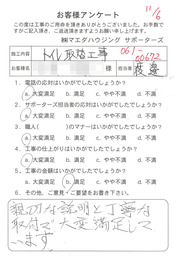 11/6
お客様アンケート
この度は工事のご用命を頂きありがとうございました。お手数で
すがご記入頂き、ご返送頂きますようお願い申し上げます。
㈱マエダハウジング サポーターズ
施工内容 トイレ取替工事 061-00672
お名前 様 担当者 渡邊
1．電話の応対はいかがでしたか？
a.大変満足 b.満足 c.やや不満 d.不満
2．サポーターズ担当者の応対はいかがでしたか？
a.大変満足 b.満足 c.やや不満 d.不満
3．職人( )のマナーはいかがでしたか？
a.大変満足 b.満足 c.やや不満 d.不満
4．工事の仕上がりはいかがでしたか？
a.大変満足 b.満足 c.やや不満 d.不満
5．工事の金額はいかがでしたか？
a.大変満足 b.満足 c.やや不満 d.不満
6．その他、ご意見・ご要望をお書き下さい。
親切な説明と丁寧な
取付で大変満足して
います。